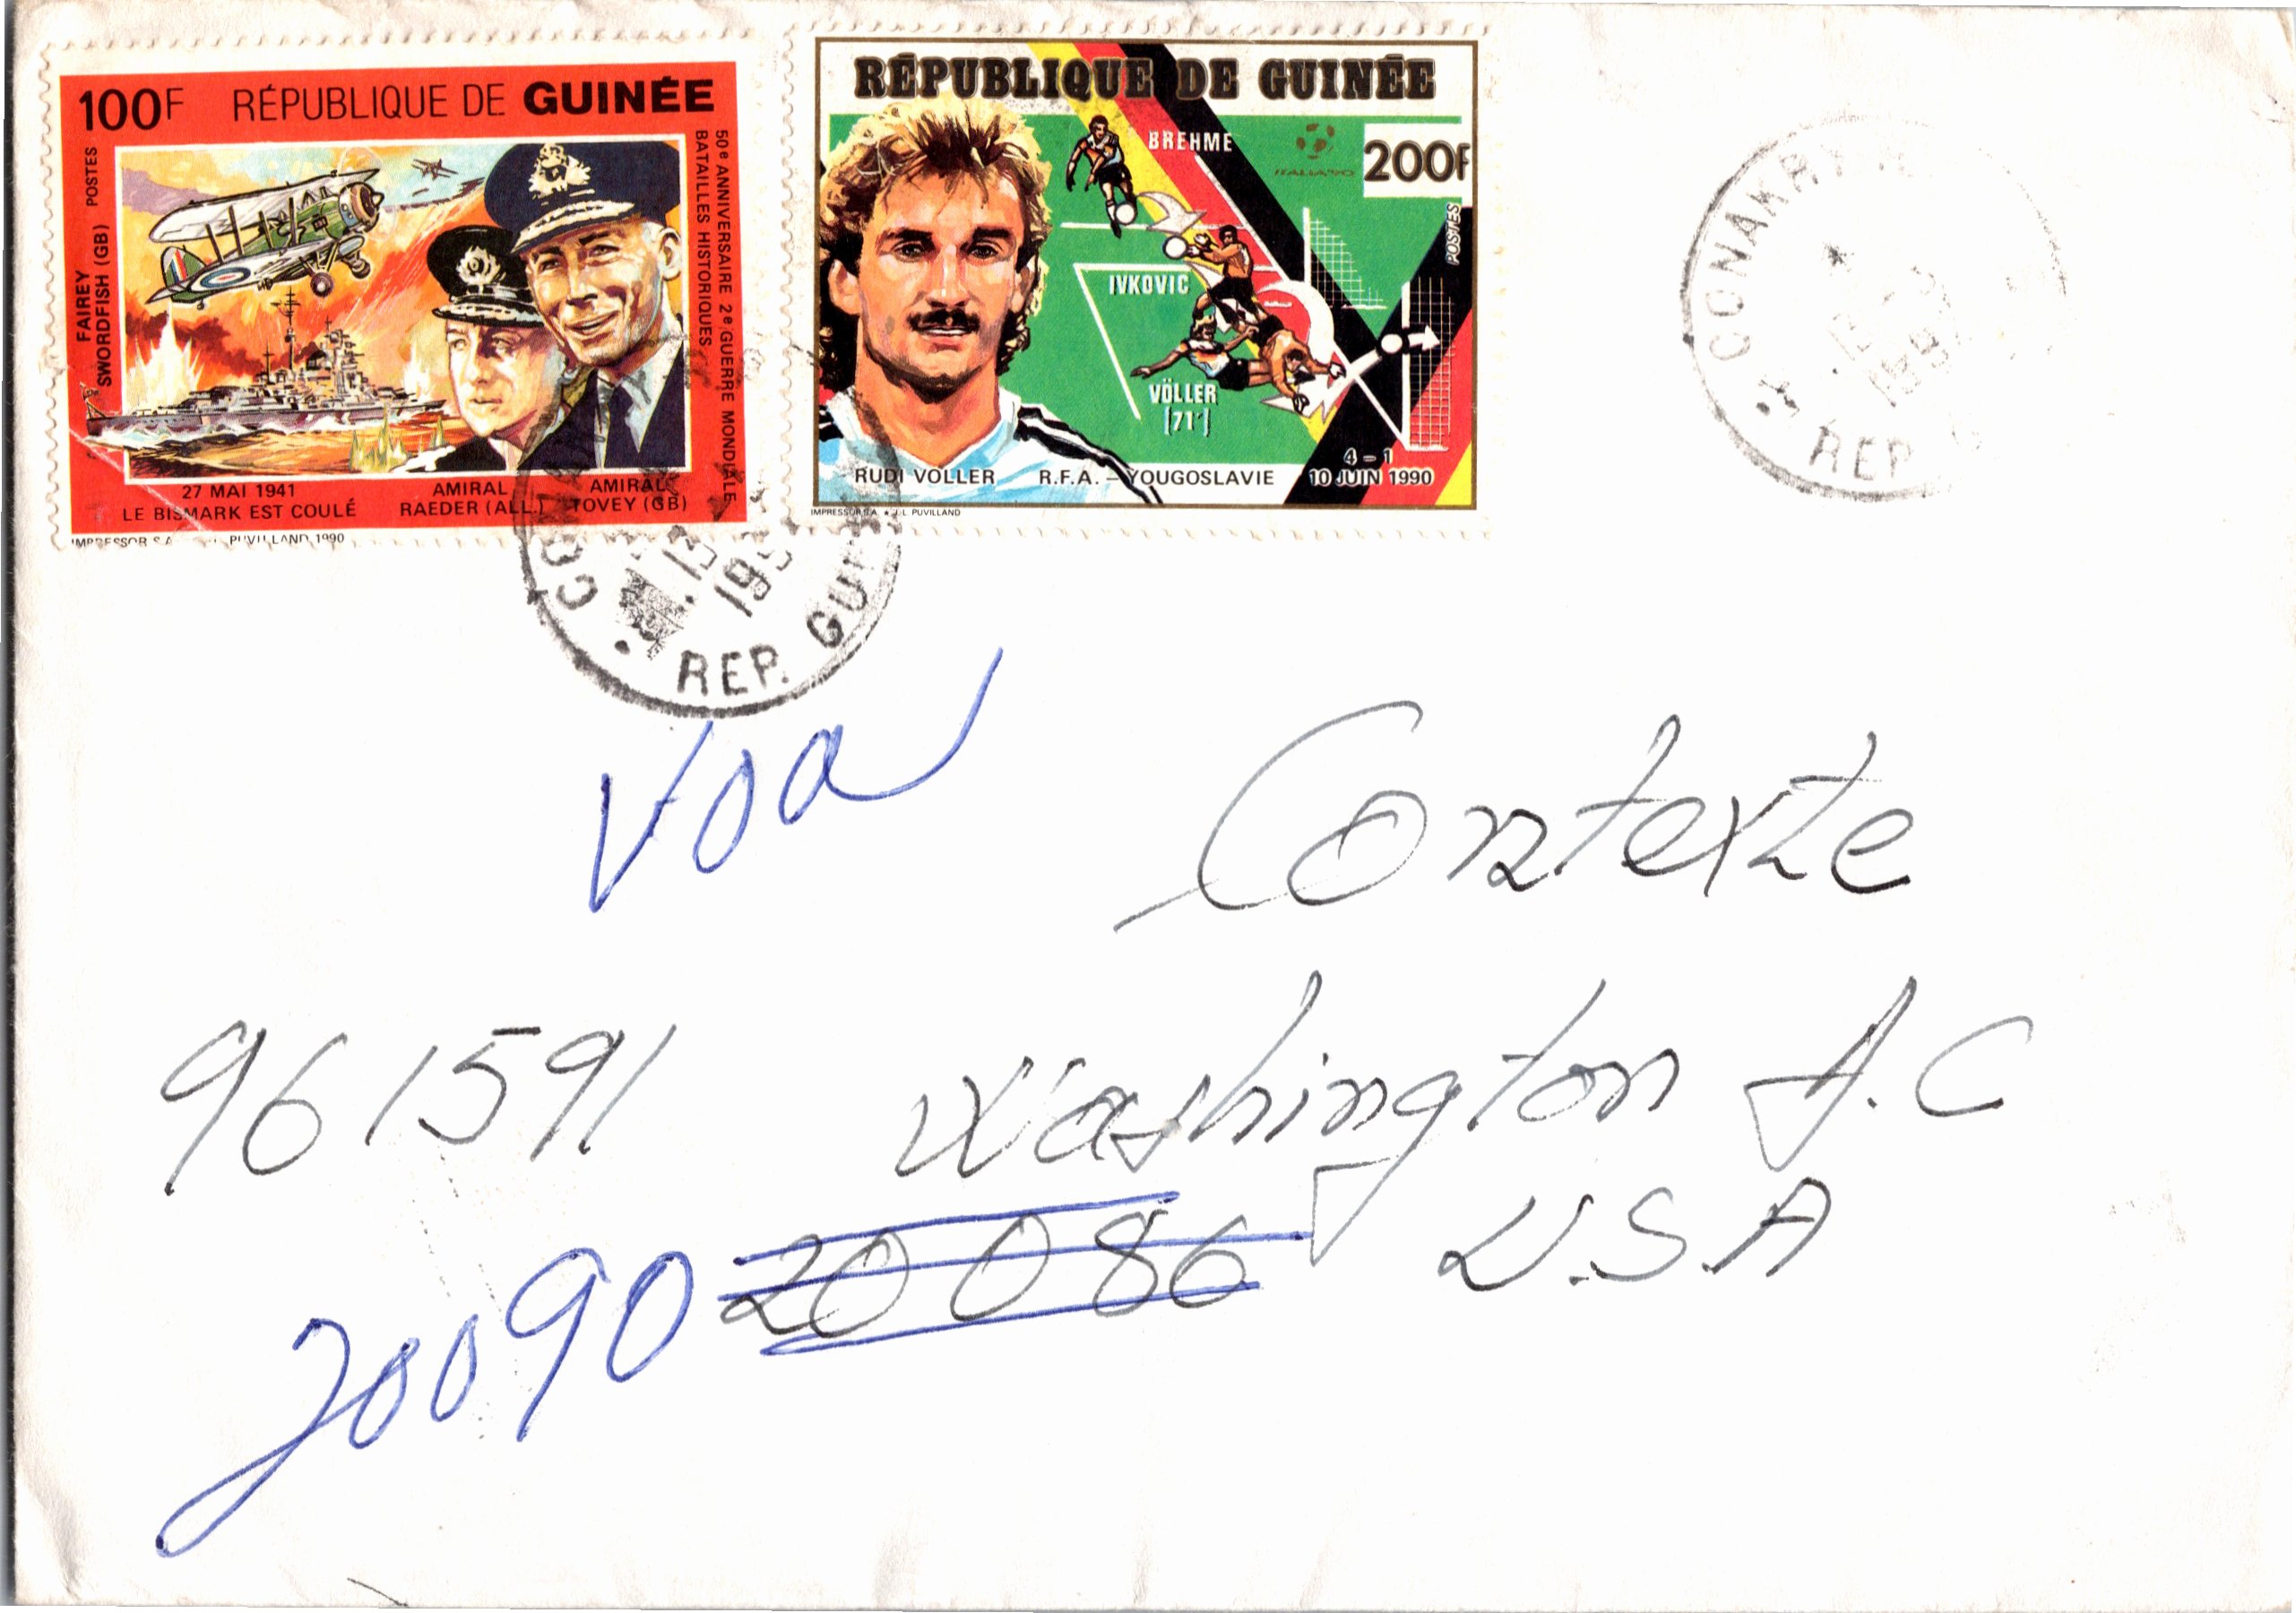 100F RÉPUBLIQUE DE GUINÉE
POSTES
FAIREY
SWORDFISH (GB)
50e ANNIVERSAIRE 2e GUERRE MONDIALE
BATAILLES HISTORIQUES
27 MAI 1941
LE BISMARK EST COULÉ
AMIRAL
RAEDER (ALL.)
AMIRAL
TOVEY (GB)
IMPRESSOR S.A. PUVILLAND 1990
RÉPUBLIQUE DE GUINÉE
BREHME
ITALIA'90
200F
POSTES
IVKOVIC
VÖLLER
(71')
4 - 1
RUDI VOLLER R.F.A. - YOUGOSLAVIE 10 JUIN 1990
IMPRESSOR S.A. ★ J.L. PUVILLAND
CONAKRY
REP.
13
REP. GUI
Voa
Contexte
961591
Washington D.C
20086
U.S.A
20090